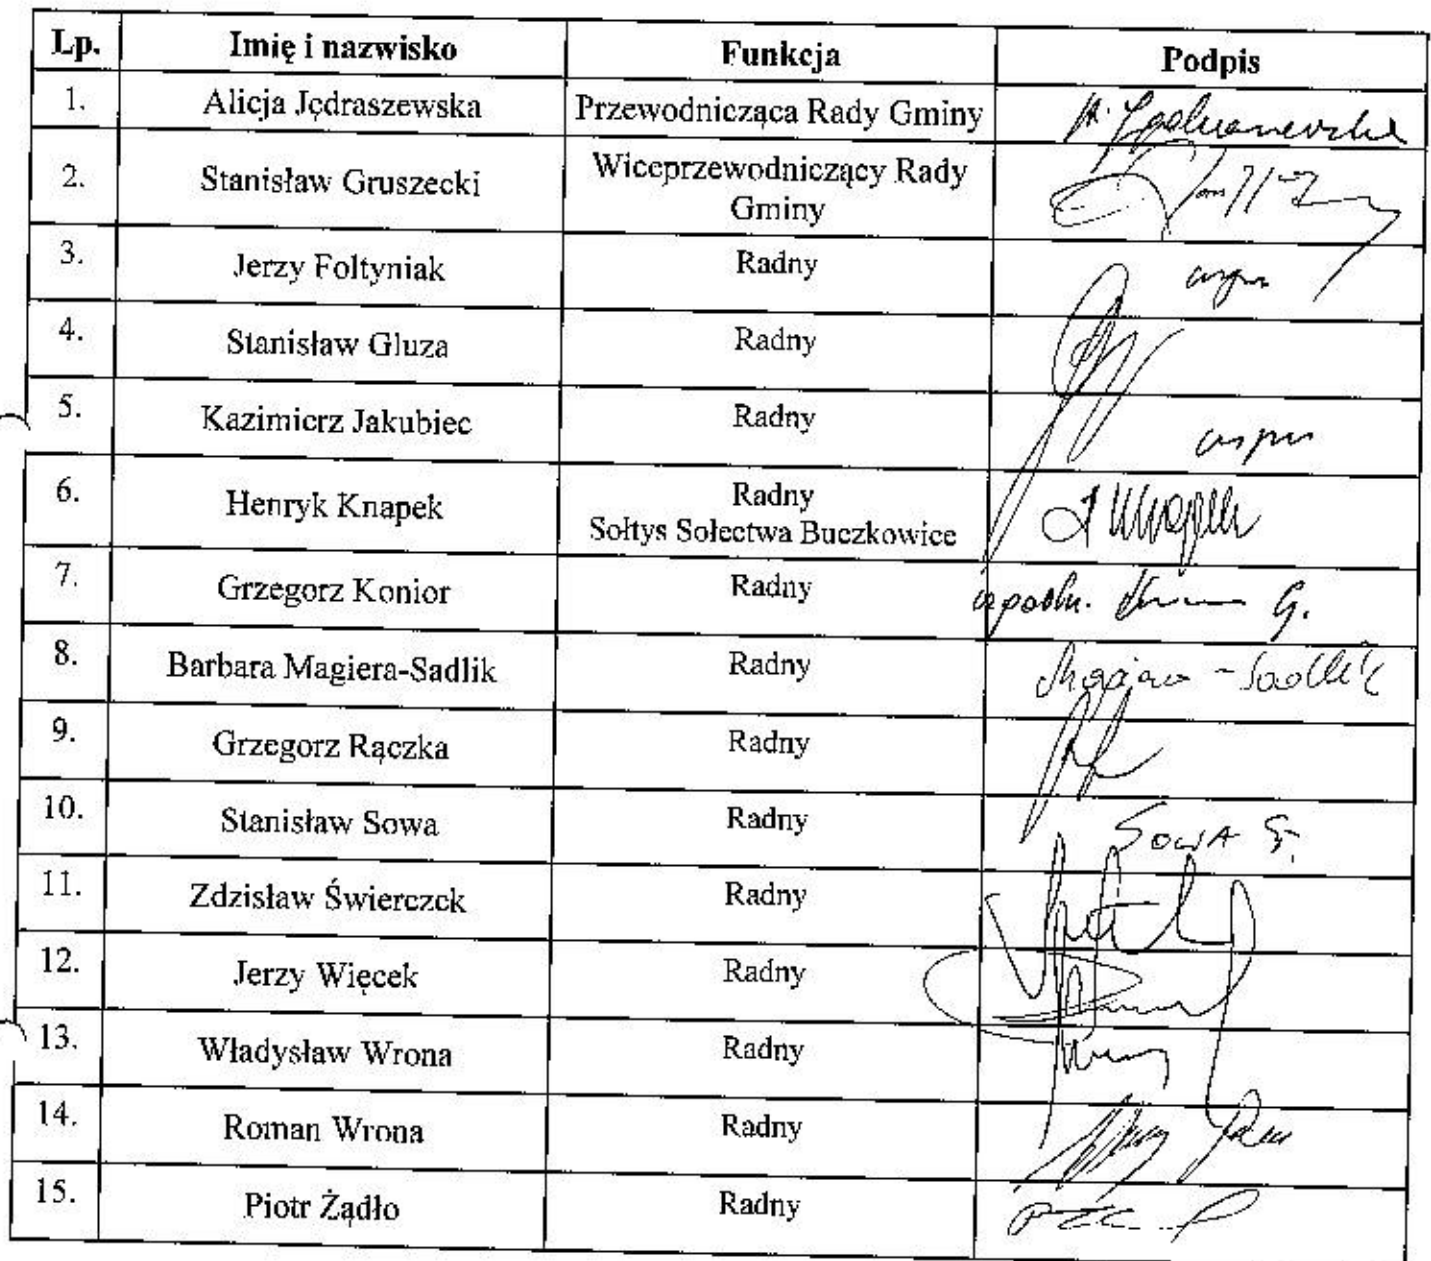 Lp. Imię i nazwisko Funkcja Podpis
1. Alicja Jędraszewska Przewodnicząca Rady Gminy
2. Stanisław Gruszecki Wiceprzewodniczący Rady
Gminy
3. Jerzy Foltyniak Radny
4. Stanisław Gluza Radny
5. Kazimierz Jakubiec Radny
6. Henryk Knapek Radny
Sołtys Sołectwa Buczkowice
7. Grzegorz Konior Radny G.
8. Barbara Magiera-Sadlik Radny Magiera-Sadlik
9. Grzegorz Rączka Radny
10. Stanisław Sowa Radny Sowa S.
11. Zdzisław Świerczek Radny
12. Jerzy Więcek Radny
13. Władysław Wrona Radny
14. Roman Wrona Radny
15. Piotr Żądło Radny